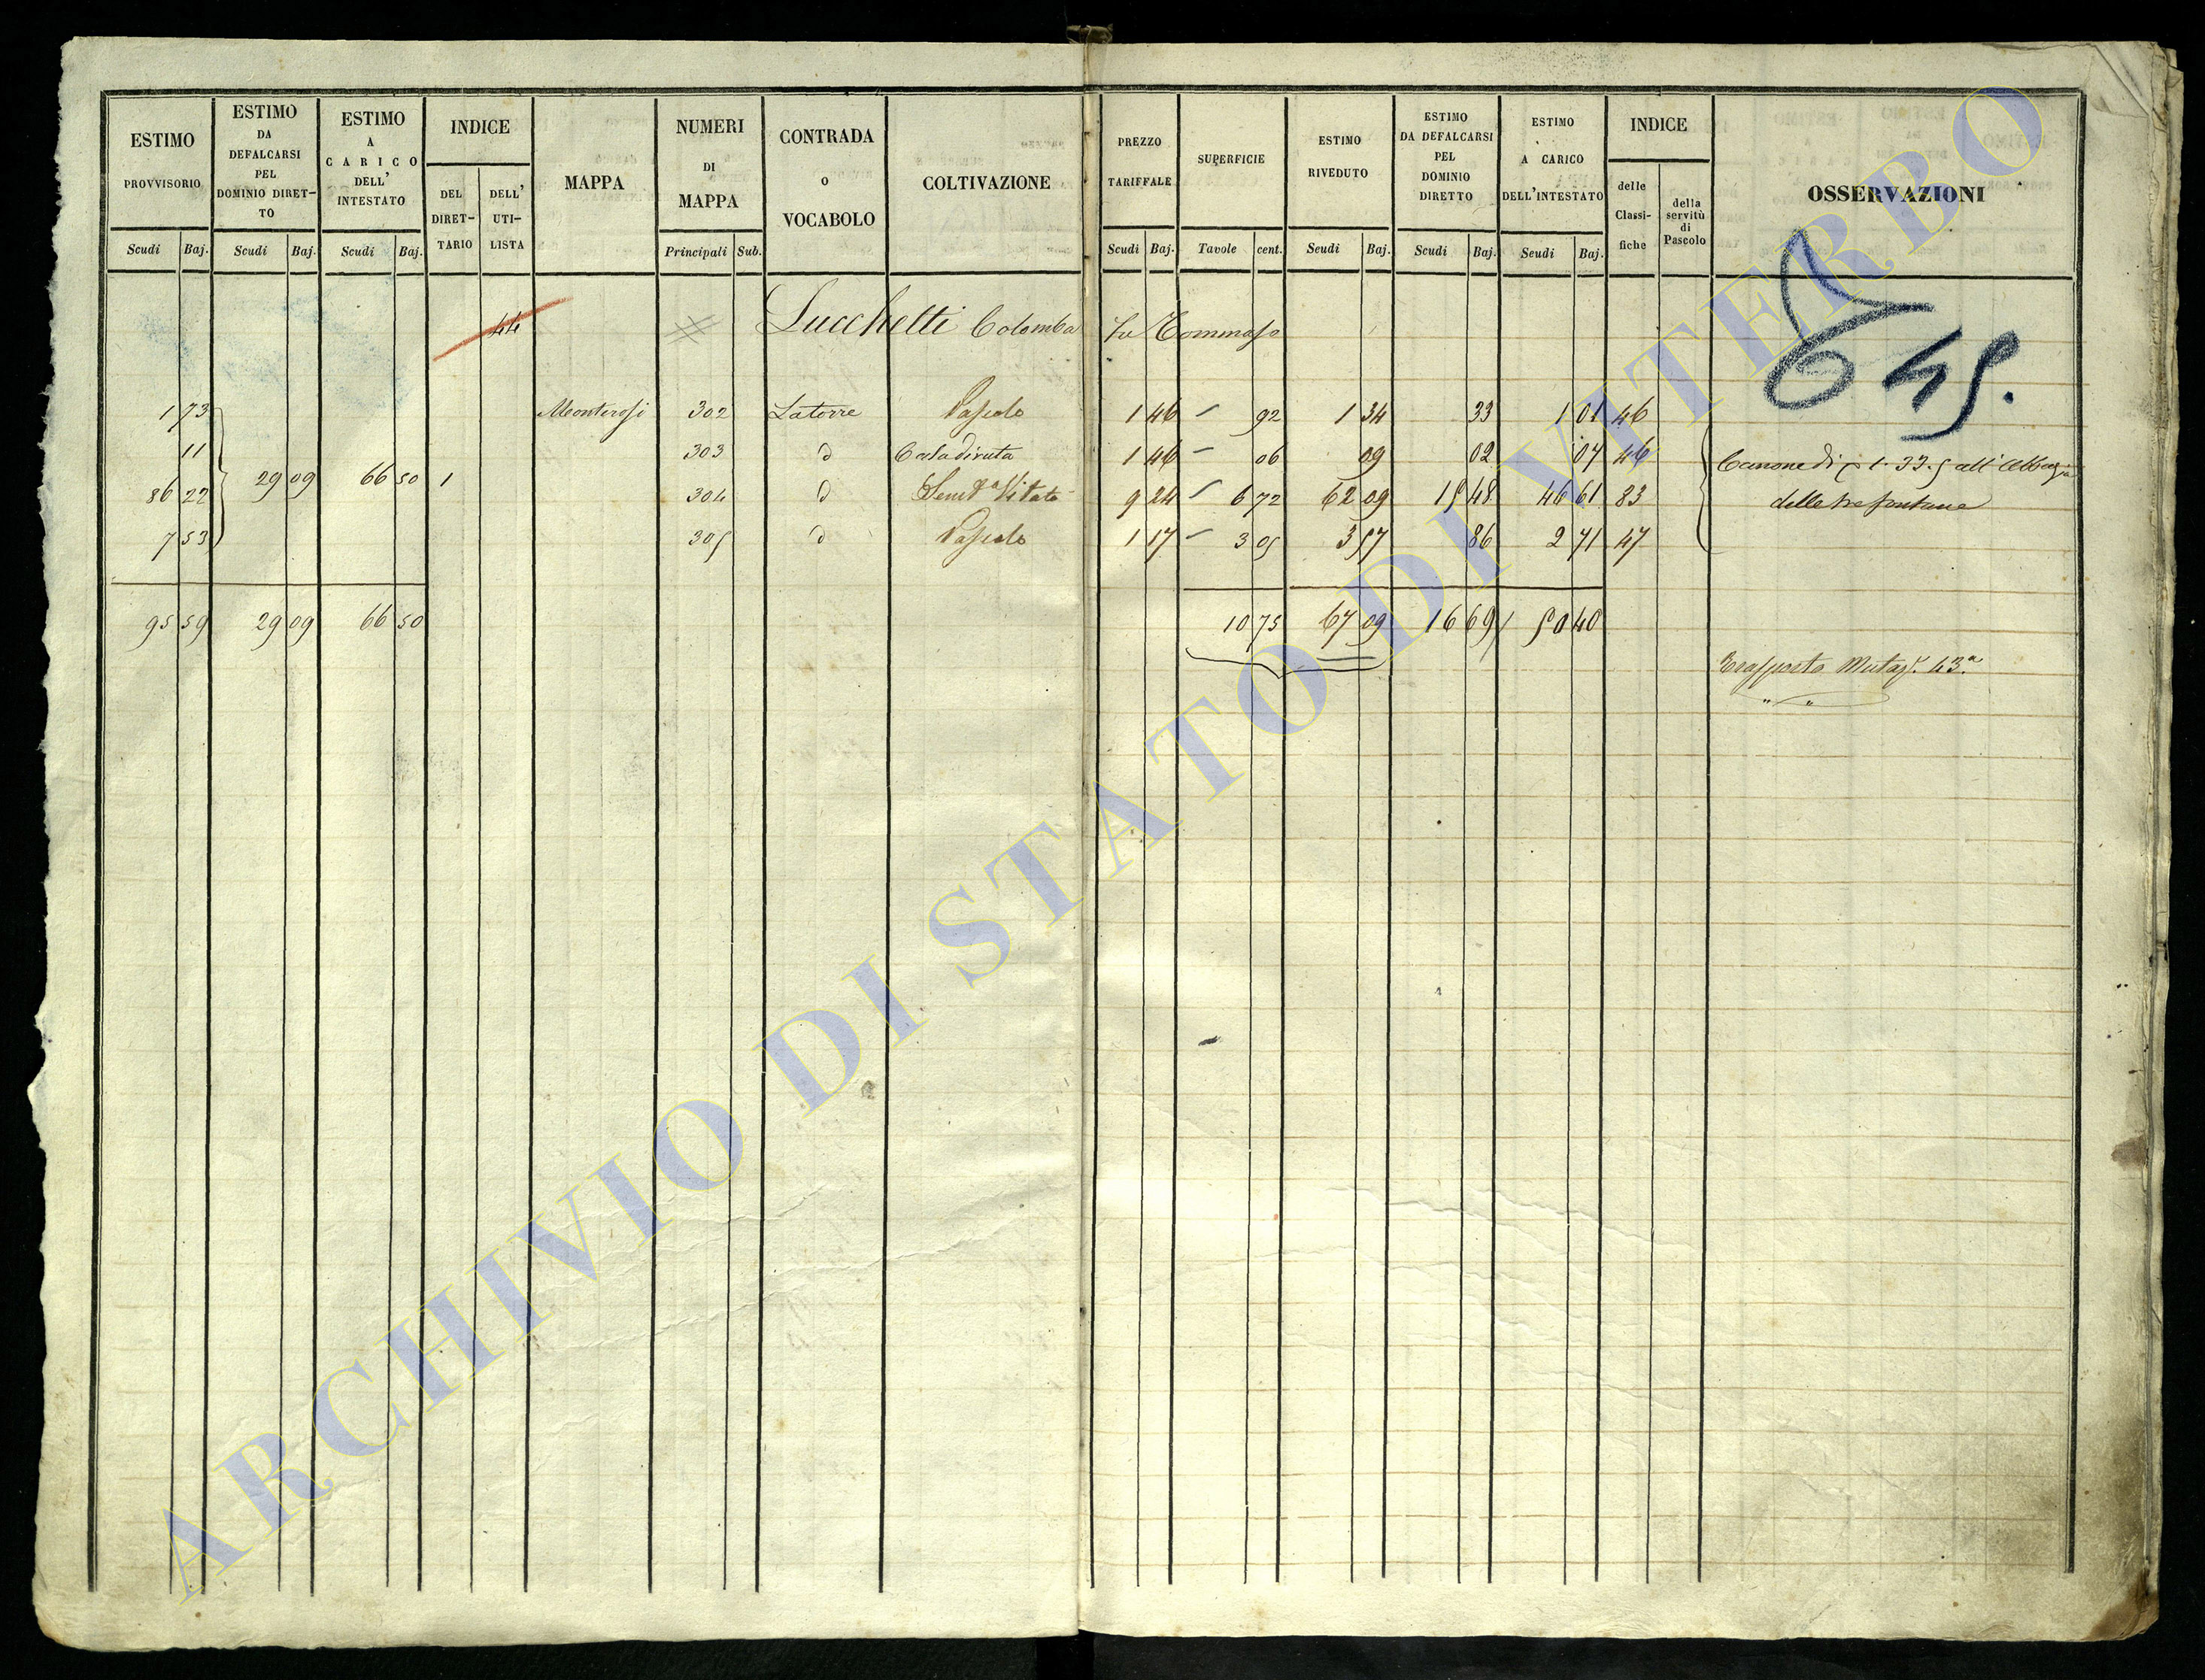 ESTIMO PROVVISORIO | ESTIMO DA DEFALCARSI PEL DOMINIO DIRETTO | ESTIMO A CARICO DELL' INTESTATO | INDICE | MAPPA | NUMERI DI MAPPA | CONTRADA O VOCABOLO | COLTIVAZIONE | PREZZO TARIFFALE | SUPERFICIE | ESTIMO RIVEDUTO | ESTIMO DA DEFALCARSI PEL DOMINIO DIRETTO | ESTIMO A CARICO DELL'INTESTATO | INDICE | OSSERVAZIONI
DEL DIRETTARIO | DELL' UTILISTA | delle Classifiche | della servitù di Pascolo
Scudi Baj. | Scudi Baj. | Scudi Baj. | Principali Sub. | Scudi Baj. | Tavole cent. | Scudi Baj. | Scudi Baj. | Scudi Baj.
44 Lucchetti Colomba fu Tommaso
645.
1 73 | Monterosi | 302 | Latorre | Pascolo | 1 46 | 92 | 1 34 | 33 | 1 01 | 46
11 | 303 | d | Casa diruta | 1 46 | 06 | 09 | 02 | 07 | 46
86 22 | 29 09 | 66 50 | 1 | 304 | d | Vitato | 9 24 | 6 72 | 62 09 | 15 48 | 46 61 | 83
7 53 | 305 | d | Pascolo | 1 17 | 3 05 | 3 57 | 86 | 2 71 | 47
Canone di 1.33.5 all'Abbazia
delle tre fontane
95 59 | 29 09 | 66 50 | 10 75 | 67 09 | 16 69 | 50 40
Trasporto Mutaz. 43.a
ARCHIVIO DI STATO DI VITERBO